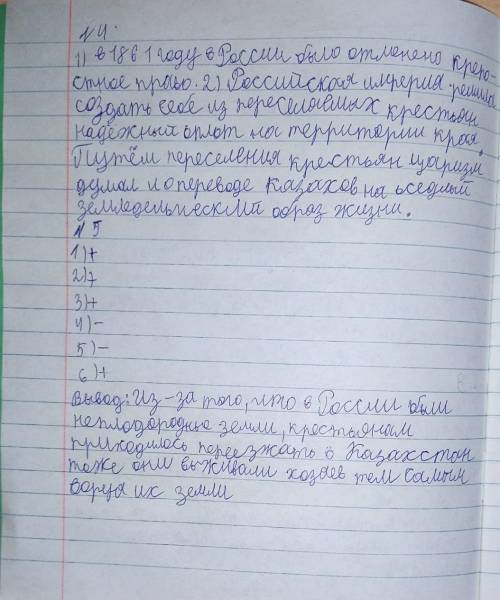 №4.
1) в 1861 году в России было отменено крепо-
стное право. 2) Российская империя решила
создать себе из переселяемых крестьян
надёжный оплот на территории края.
Путём переселения крестьян царизм
думал и о переводе казахов на оседлый
земледельческий образ жизни.
№5
1)+
2)+
3)+
4)-
5)-
6)+
Вывод: Из-за того, что в России были
неплодородные земли, крестьяным
приходилось переезжать в Казахстан
тоже они выживали хозяев тем самым
воруя их земли